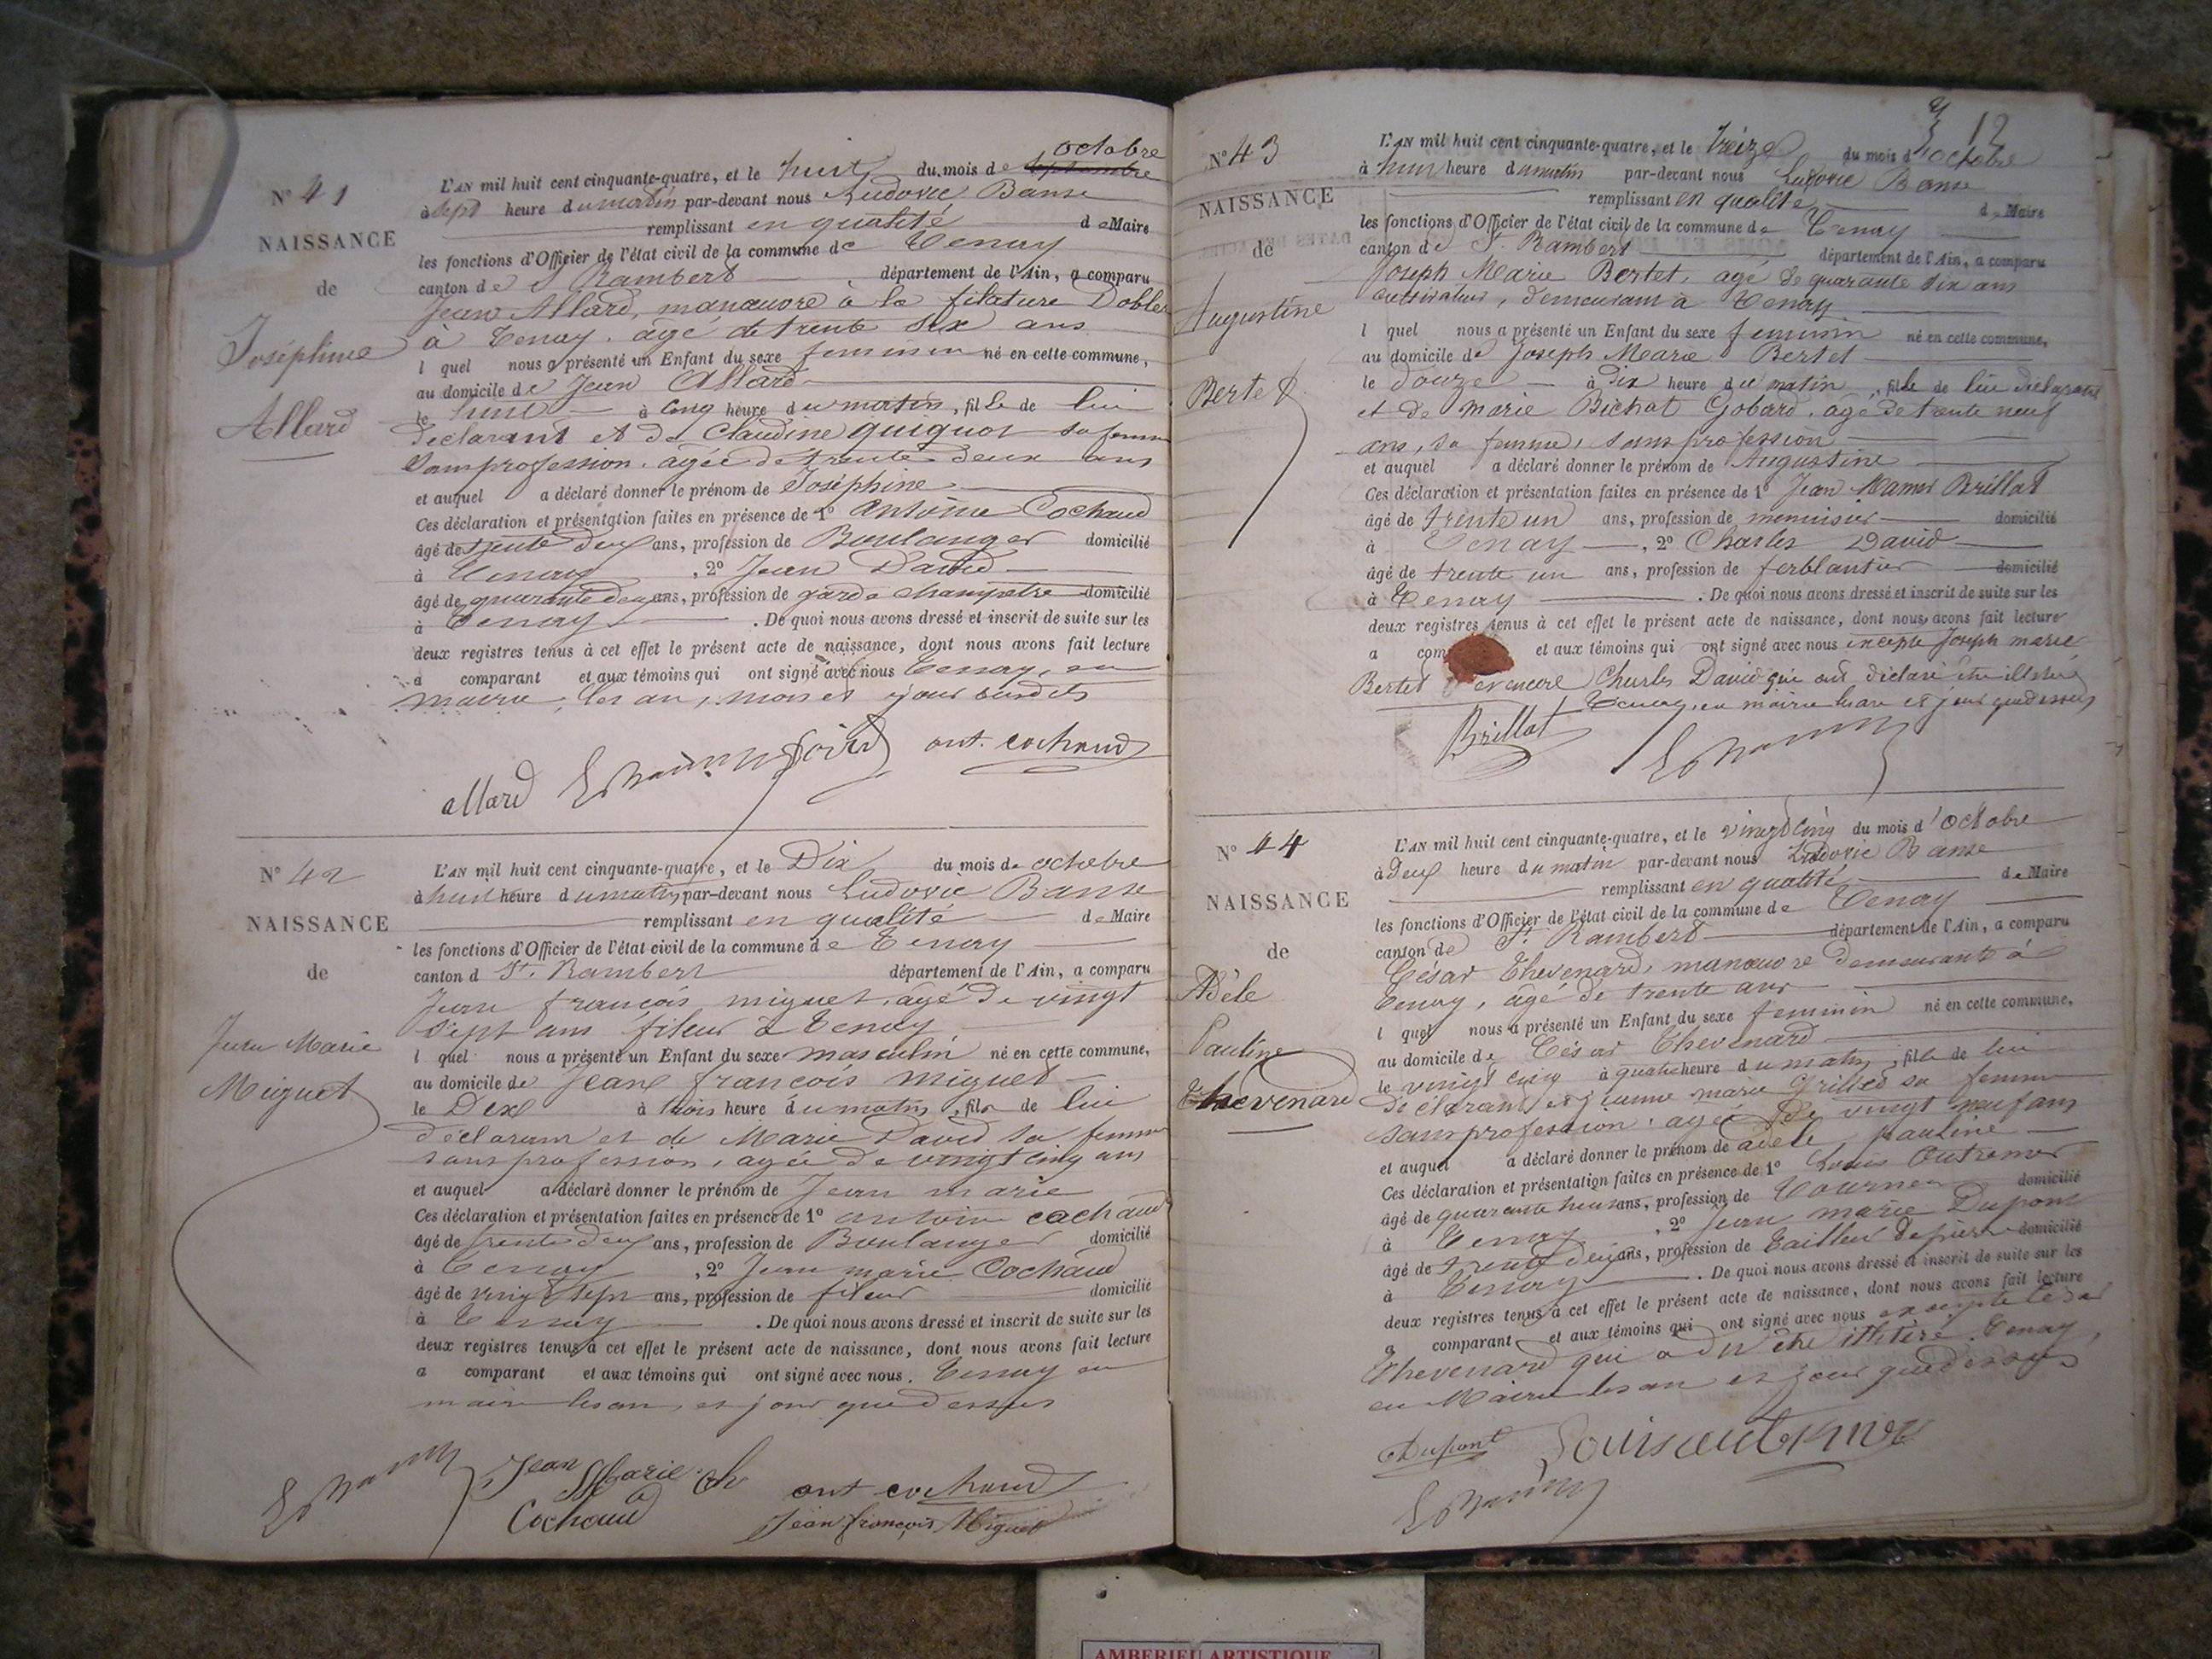 N° 41
NAISSANCE
de
Joséphine
Allard
octobre
L'AN mil huit cent cinquante-quatre, et le huit du mois de septembre
à sept heure du matin par-devant nous Ludovic Banse
remplissant en qualité de Maire
les fonctions d'Officier de l'état civil de la commune de Tenay
canton de St Rambert département de l'Ain, a comparu
Jean Allard, manœuvre à la filature Dobler
à Tenay, âgé de trente six ans
l quel nous a présenté un Enfant du sexe feminin né en cette commune,
au domicile de Jean Allard
le huit à cinq heure du matin, fille de lui
déclarant et de Claudine guiguot sa femme
sans profession, âgée de trente deux ans
et auquel a déclaré donner le prénom de Joséphine
Ces déclaration et présentation faites en présence de 1° Antoine Cochaud
âgé de trente deux ans, profession de Boulanger domicilié
à Tenay, 2° Jean David
âgé de quarante deux ans, profession de garde champêtre domicilié
à Tenay. De quoi nous avons dressé et inscrit de suite sur les
deux registres tenus à cet effet le présent acte de naissance, dont nous avons fait lecture
a comparant et aux témoins qui ont signé avec nous Tenay, en
mairie, les an, mois et jour susdits
allard ant. cochaud
N° 42
NAISSANCE
de
Jean Marie
Miguet
L'AN mil huit cent cinquante-quatre, et le Dix du mois de octobre
à huit heure du matin, par-devant nous Ludovic Banse
remplissant en qualité de Maire
les fonctions d'Officier de l'état civil de la commune de Tenay
canton d St. Rambert département de l'Ain, a comparu
Jean françois miguet, âgé de vingt
sept ans fileur à Tenay
l quel nous a présenté un Enfant du sexe masculin né en cette commune,
au domicile de Jean françois miguet
le Dix à trois heure du matin, fils de lui
déclarant et de Marie David sa femme
sans profession, agée de vingt cinq ans
et auquel a déclaré donner le prénom de Jean marie
Ces déclaration et présentation faites en présence de 1° antoine cochaud
âgé de trente deux ans, profession de Boulanger domicilié
à Tenay, 2° Jean marie Cochaud
âgé de vingt sept ans, profession de fileur domicilié
à Tenay. De quoi nous avons dressé et inscrit de suite sur les
deux registres tenus à cet effet le présent acte de naissance, dont nous avons fait lecture
a comparant et aux témoins qui ont signé avec nous. Tenay en
mairie les an, et jour que dessus
Jean Marie
Cochaud
ant cochaud
Jean françois Miguet
12
N° 43
NAISSANCE
de
Augustine
Bertet
L'AN mil huit cent cinquante-quatre, et le treize du mois d'octobre
à huit heure du matin par-devant nous Ludovic Banse
remplissant en qualité de Maire
les fonctions d'Officier de l'état civil de la commune de Tenay
canton de St. Rambert département de l'Ain, a comparu
Joseph Marie Bertet, agé de quarante six ans
cultivateur, demeurant à Tenay
l quel nous a présenté un Enfant du sexe feminin né en cette commune,
au domicile de Joseph Marie Bertet
le douze à dix heure du matin, fille de lui déclarant
et de Marie Bichat Gobard, agé de trente neuf
ans, sa femme, sans profession
et auquel a déclaré donner le prénom de Augustine
Ces déclaration et présentation faites en présence de 1° Jean Brillat
âgé de trente un ans, profession de menuisier domicilié
à Tenay, 2° Charles David
âgé de trente un ans, profession de ferblantier domicilié
à Tenay. De quoi nous avons dressé et inscrit de suite sur les
deux registres tenus à cet effet le présent acte de naissance, dont nous avons fait lecture
a com et aux témoins qui ont signé avec nous excepté Joseph marie
Bertet et encore Charles David qui ont déclaré être illitéré
Tenay, en mairie les an et jour que dessus
Brillat
N° 44
NAISSANCE
de
Adèle
Pauline
Thevenard
L'AN mil huit cent cinquante-quatre, et le vingt cinq du mois d'Octobre
à deux heure du matin par-devant nous Ludovic Banse
remplissant en qualité de Maire
les fonctions d'Officier de l'état civil de la commune de Tenay
canton de St. Rambert département de l'Ain, a comparu
César Thevenard, manœuvre demeurant à
Tenay, âgé de trente ans
l quel nous a présenté un Enfant du sexe feminin né en cette commune,
au domicile de César Thevenard
le vingt cinq à quatre heure du matin, fille de lui
déclarant et jeanne marie Grillet sa femme
sans profession, agée de vingt neuf ans
et auquel a déclaré donner le prénom de adele, pauline
Ces déclaration et présentation faites en présence de 1° Louis Outremer
âgé de quarante huit ans, profession de Tourneur domicilié
à Tenay, 2° Jean marie Dupont
âgé de trente deux ans, profession de Tailleur de pierre domicilié
à Tenay. De quoi nous avons dressé et inscrit de suite sur les
deux registres tenus à cet effet le présent acte de naissance, dont nous avons fait lecture
a comparant et aux témoins qui ont signé avec nous excepté César
Thevenard qui a dit être illitéré. Tenay,
en Mairie les an et jour que dessus
Dupont Louis outremer
AMBERIEU ARTISTIQUE